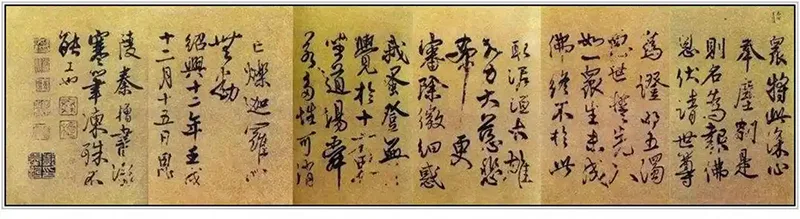 衆將此深心
奉塵刹是
則名為報佛
恩伏請世尊
為證明五濁
惡世誓先入
如一衆生未成
佛終不於此
取泥洹大雄
大力大慈悲
希更
審除微細惑
我蚤登無上
覺於十方界
坐道場舜
若多性可消
亡爍迦羅心
無動
紹興十二年壬戌
十二月十五日恩
陵秦僧書歲
寒筆凍殊不
能工也